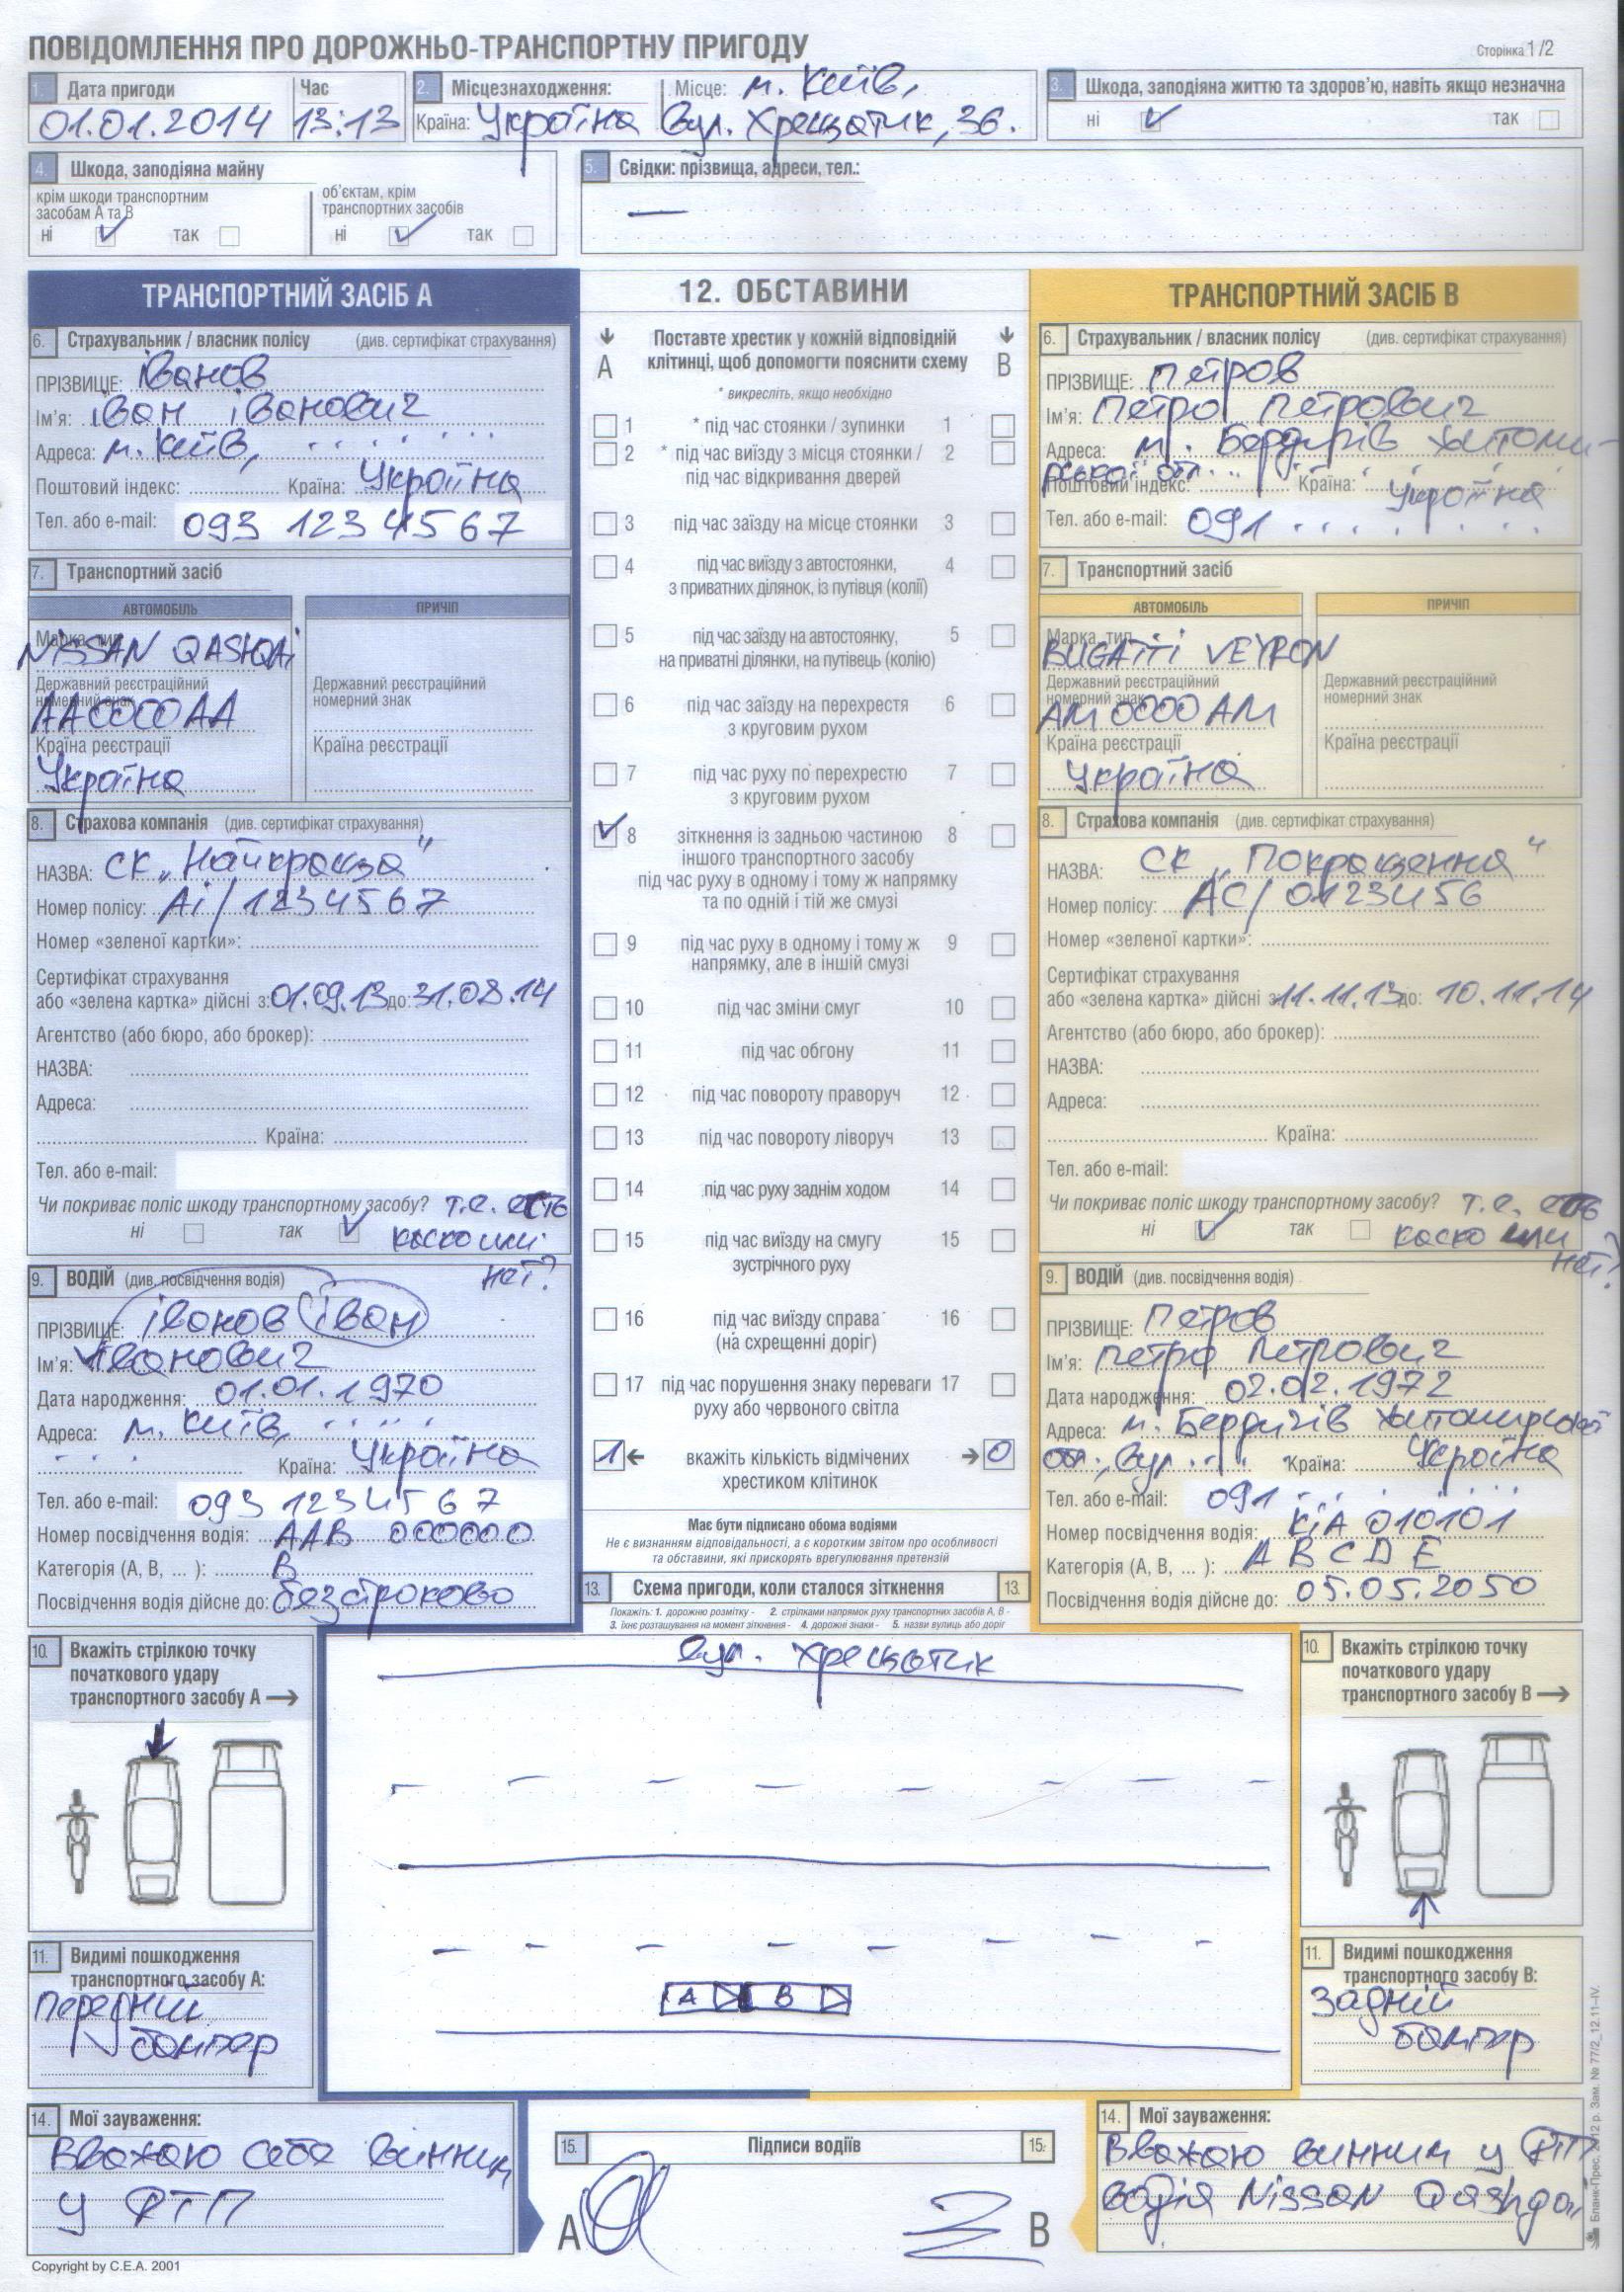 ПОВІДОМЛЕННЯ ПРО ДОРОЖНЬО-ТРАНСПОРТНУ ПРИГОДУ
Сторінка 1/2
1. Дата пригоди
Час
01.01.2014
13:13
2. Місцезнаходження:
Країна: Україна
Місце: м. Київ,
вул. Хрещатик, 36.
3. Шкода, заподіяна життю та здоров'ю, навіть якщо незначна
ні ✓ так
4. Шкода, заподіяна майну
крім шкоди транспортним
засобам А та В
ні ✓ так
об'єктам, крім
транспортних засобів
ні ✓ так
5. Свідки: прізвища, адреси, тел.:
—
ТРАНСПОРТНИЙ ЗАСІБ А
6. Страхувальник / власник полісу (див. сертифікат страхування)
ПРІЗВИЩЕ: Іванов
Ім'я: Іван Іванович
Адреса: м. Київ, . . . . . . .
Поштовий індекс: Країна: Україна
Тел. або e-mail: 093 1234567
7. Транспортний засіб
АВТОМОБІЛЬ
ПРИЧІП
Марка, тип
NISSAN QASHQAI
Державний реєстраційний
номерний знак
AA0000AA
Країна реєстрації
Україна
Державний реєстраційний
номерний знак
Країна реєстрації
8. Страхова компанія (див. сертифікат страхування)
НАЗВА: СК „Найкраща"
Номер полісу: АІ/1234567
Номер «зеленої картки»:
Сертифікат страхування
або «зелена картка» дійсні з: 01.09.13 до: 31.08.14
Агентство (або бюро, або брокер):
НАЗВА:
Адреса:
Країна:
Тел. або e-mail:
Чи покриває поліс шкоду транспортному засобу? т.е. есть
ні так ✓ каско или
нет?
9. ВОДІЙ (див. посвідчення водія)
ПРІЗВИЩЕ: Іванов Іван
Ім'я: Іванович
Дата народження: 01.01.1970
Адреса: м. Київ, . . . . .
. . . Країна: Україна
Тел. або e-mail: 093 1234567
Номер посвідчення водія: ААВ 000000
Категорія (А, В, ... ): В
Посвідчення водія дійсне до: безстроково
10. Вкажіть стрілкою точку
початкового удару
транспортного засобу А →
11. Видимі пошкодження
транспортного засобу А:
передній
бампер
14. Мої зауваження:
Вважаю себе винним
у ДТП
12. ОБСТАВИНИ
А
Поставте хрестик у кожній відповідній
клітинці, щоб допомогти пояснити схему
В
* викресліть, якщо необхідно
1 * під час стоянки / зупинки 1
2 * під час виїзду з місця стоянки / 2
під час відкривання дверей
3 під час заїзду на місце стоянки 3
4 під час виїзду з автостоянки, 4
з приватних ділянок, із путівця (колії)
5 під час заїзду на автостоянку, 5
на приватні ділянки, на путівець (колію)
6 під час заїзду на перехрестя 6
з круговим рухом
7 під час руху по перехрестю 7
з круговим рухом
✓ 8 зіткнення із задньою частиною 8
іншого транспортного засобу
під час руху в одному і тому ж напрямку
та по одній і тій же смузі
9 під час руху в одному і тому ж 9
напрямку, але в іншій смузі
10 під час зміни смуг 10
11 під час обгону 11
12 під час повороту праворуч 12
13 під час повороту ліворуч 13
14 під час руху заднім ходом 14
15 під час виїзду на смугу 15
зустрічного руху
16 під час виїзду справа 16
(на схрещенні доріг)
17 під час порушення знаку переваги 17
руху або червоного світла
1 ← вкажіть кількість відмічених → 0
хрестиком клітинок
Має бути підписано обома водіями
Не є визнанням відповідальності, а є коротким звітом про особливості
та обставини, які прискорять врегулювання претензій
13. Схема пригоди, коли сталося зіткнення 13.
Покажіть: 1. дорожню розмітку - 2. стрілками напрямок руху транспортних засобів А, В -
3. їхнє розташування на момент зіткнення - 4. дорожні знаки - 5. назви вулиць або доріг
вул. Хрещатик
А В
15. Підписи водіїв 15.
А В
ТРАНСПОРТНИЙ ЗАСІБ В
6. Страхувальник / власник полісу (див. сертифікат страхування)
ПРІЗВИЩЕ: Петров
Ім'я: Петро Петрович
Адреса: м. Бердичів Житоми-
рської обл. . .
Поштовий індекс: Країна: Україна
Тел. або e-mail: 091 . . . . . . .
7. Транспортний засіб
АВТОМОБІЛЬ
ПРИЧІП
Марка, тип
BUGATTI VEYRON
Державний реєстраційний
номерний знак
AM0000AM
Країна реєстрації
Україна
Державний реєстраційний
номерний знак
Країна реєстрації
8. Страхова компанія (див. сертифікат страхування)
НАЗВА: СК „Покращення"
Номер полісу: АС/0123456
Номер «зеленої картки»:
Сертифікат страхування
або «зелена картка» дійсні з 11.11.13 до: 10.11.14
Агентство (або бюро, або брокер):
НАЗВА:
Адреса:
Країна:
Тел. або e-mail:
Чи покриває поліс шкоду транспортному засобу? т.е. есть
ні ✓ так каско или
нет?
9. ВОДІЙ (див. посвідчення водія)
ПРІЗВИЩЕ: Петров
Ім'я: Петро Петрович
Дата народження: 02.02.1972
Адреса: м. Бердичів Житомирської
обл., вул. . . . Країна: Україна
Тел. або e-mail: 091 . . . . . .
Номер посвідчення водія: КІА 010101
Категорія (А, В, ... ): A B C D E
Посвідчення водія дійсне до: 05.05.2050
10. Вкажіть стрілкою точку
початкового удару
транспортного засобу В →
11. Видимі пошкодження
транспортного засобу В:
Задній
бампер
14. Мої зауваження:
Вважаю винним у ДТП
водія Nissan Qashqai
Copyright by C.E.A. 2001
Бланк-Прес, 2012 р. Зам. № 77/2_12.11–IV.